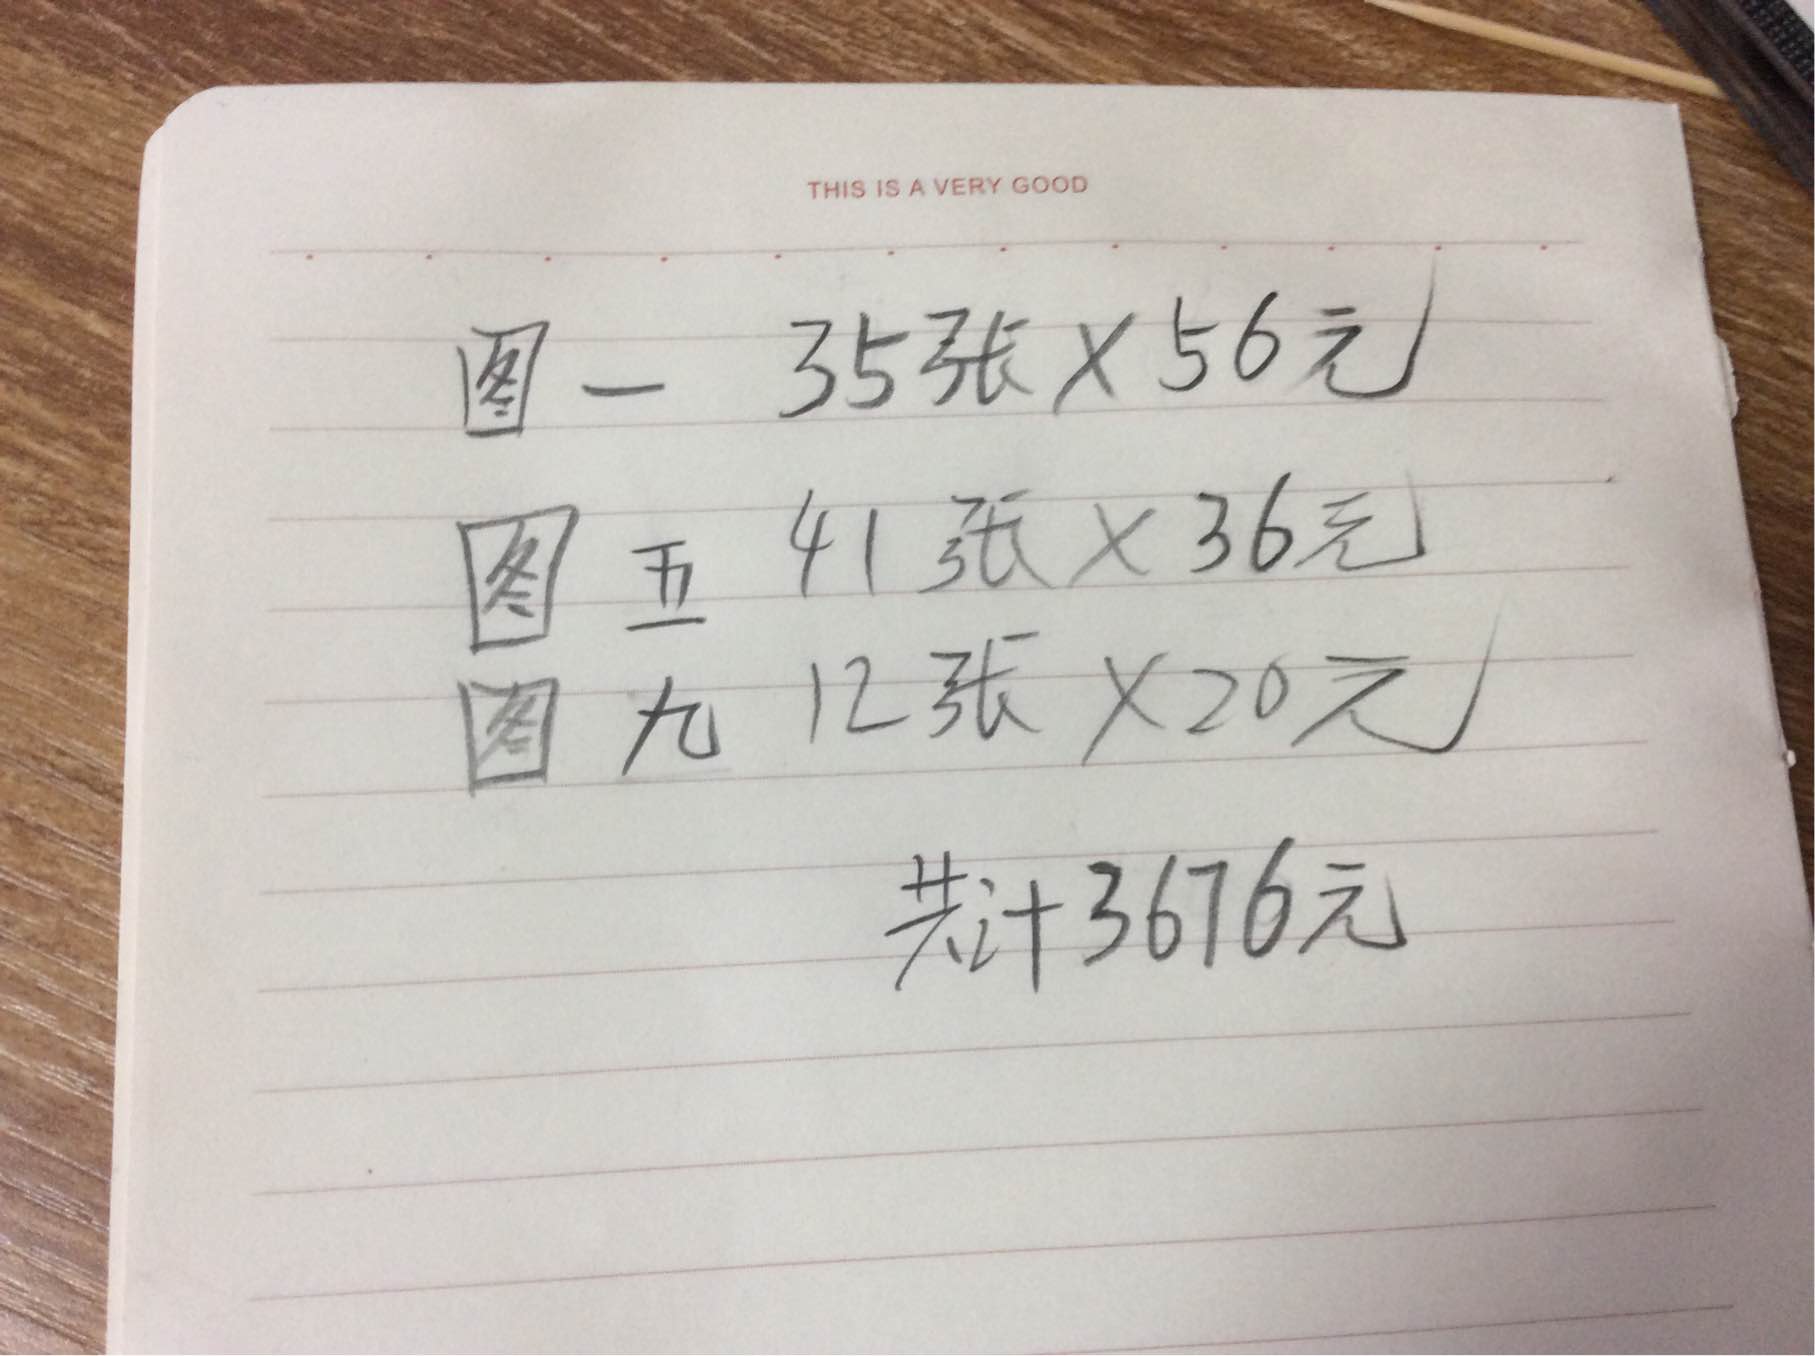 THIS IS A VERY GOOD
图一 35张×56元
图五 41张×36元
图九 12张×20元
共计3676元